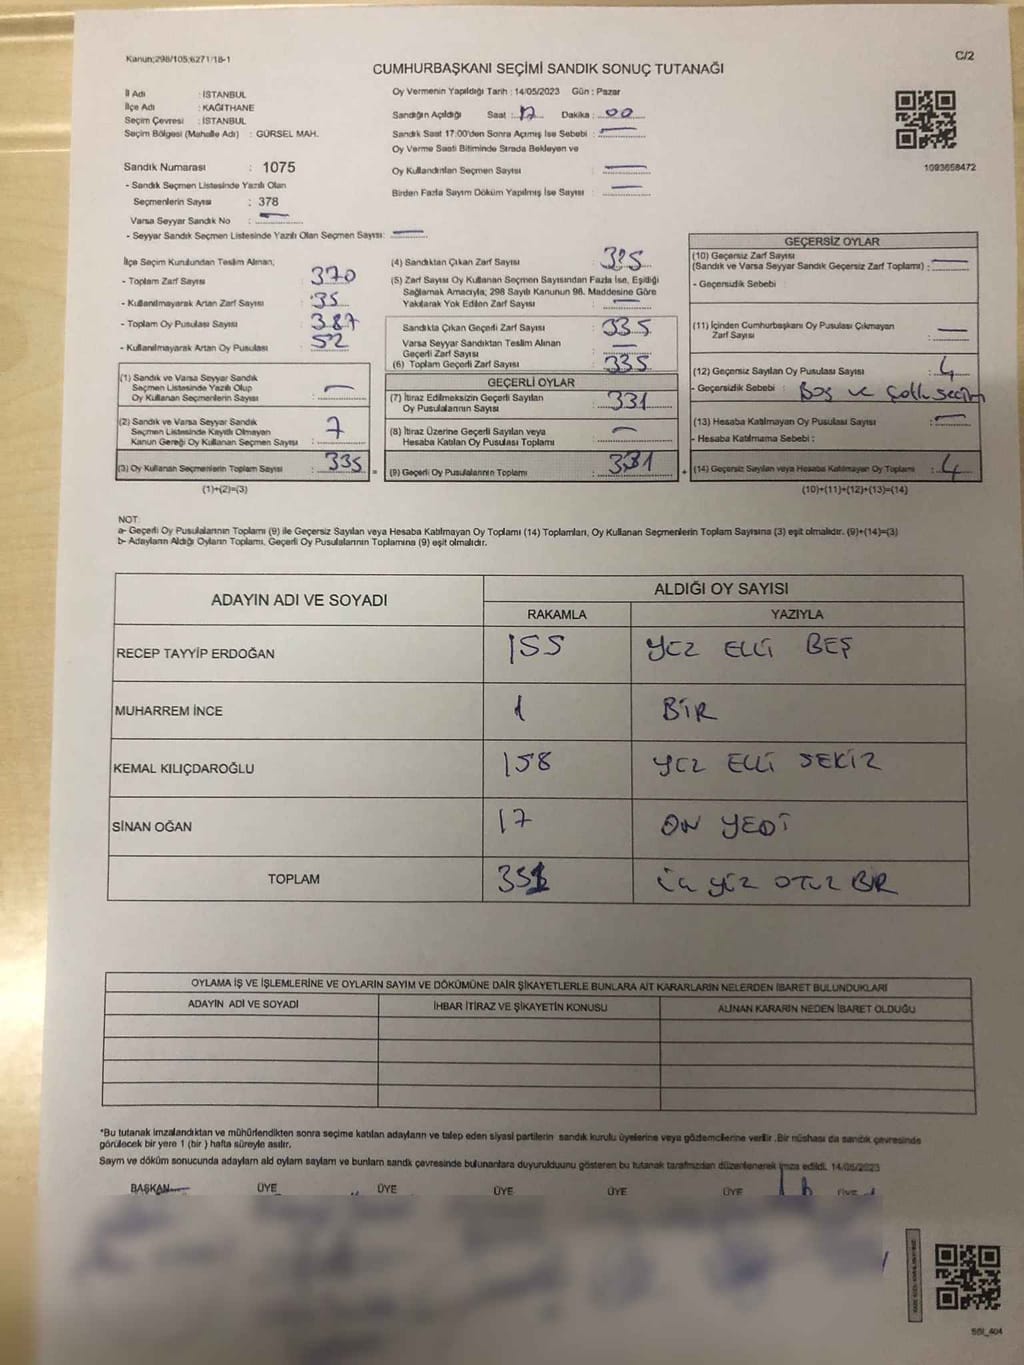 Kanun;298/105;6271/18-1
C/2
CUMHURBAŞKANI SEÇİMİ SANDIK SONUÇ TUTANAĞI
İl Adı : İSTANBUL
İlçe Adı : KAĞITHANE
Seçim Çevresi : İSTANBUL
Seçim Bölgesi (Mahalle Adı) : GÜRSEL MAH.
Oy Vermenin Yapıldığı Tarih : 14/05/2023 Gün : Pazar
Sandığın Açıldığı Saat : 17 Dakika : 00
Sandık Saat 17:00'den Sonra Açımış İse Sebebi :
Oy Verme Saati Bitiminde Sırada Bekleyen ve
Oy Kullandırılan Seçmen Sayısı :
Birden Fazla Sayım Döküm Yapılmış İse Sayısı :
1093658472
Sandık Numarası : 1075
- Sandık Seçmen Listesinde Yazılı Olan
Seçmenlerin Sayısı : 378
Varsa Seyyar Sandık No :
- Seyyar Sandık Seçmen Listesinde Yazılı Olan Seçmen Sayısı:
İlçe Seçim Kurulundan Teslim Alınan;
- Toplam Zarf Sayısı : 370
- Kullanılmayarak Artan Zarf Sayısı : 35
- Toplam Oy Pusulası Sayısı : 387
- Kullanılmayarak Artan Oy Pusulası : 52
(1) Sandık ve Varsa Seyyar Sandık
Seçmen Listesinde Yazılı Olup
Oy Kullanan Seçmenlerin Sayısı :
(2) Sandık ve Varsa Seyyar Sandık
Seçmen Listesinde Kayıtlı Olmayan
Kanun Gereği Oy Kullanan Seçmen Sayısı : 7
(3) Oy Kullanan Seçmenlerin Toplam Sayısı : 335 =
(1)+(2)=(3)
(4) Sandıktan Çıkan Zarf Sayısı :
(5) Zarf Sayısı Oy Kullanan Seçmen Sayısından Fazla İse, Eşitliği
Sağlamak Amacıyla; 298 Sayılı Kanunun 98. Maddesine Göre
Yakılarak Yok Edilen Zarf Sayısı :
Sandıkta Çıkan Geçerli Zarf Sayısı : 335
Varsa Seyyar Sandıktan Teslim Alınan
Geçerli Zarf Sayısı :
(6) Toplam Geçerli Zarf Sayısı : 335
GEÇERLİ OYLAR
(7) İtiraz Edilmeksizin Geçerli Sayılan
Oy Pusulalarının Sayısı : 331
(8) İtiraz Üzerine Geçerli Sayılan veya
Hesaba Katılan Oy Pusulası Toplamı :
(9) Geçerli Oy Pusulalarının Toplamı : 331 +
GEÇERSİZ OYLAR
(10) Geçersiz Zarf Sayısı
(Sandık ve Varsa Seyyar Sandık Geçersiz Zarf Toplamı) :
- Geçersizlik Sebebi :
(11) İçinden Cumhurbaşkanı Oy Pusulası Çıkmayan
Zarf Sayısı :
(12) Geçersiz Sayılan Oy Pusulası Sayısı : 4
- Geçersizlik Sebebi : Boş ve Çoklu seçim
(13) Hesaba Katılmayan Oy Pusulası Sayısı :
- Hesaba Katılmama Sebebi :
(14) Geçersiz Sayılan veya Hesaba Katılmayan Oy Toplamı : 4
(10)+(11)+(12)+(13)=(14)
NOT:
a- Geçerli Oy Pusulalarının Toplamı (9) ile Geçersiz Sayılan veya Hesaba Katılmayan Oy Toplamı (14) Toplamları, Oy Kullanan Seçmenlerin Toplam Sayısına (3) eşit olmalıdır. (9)+(14)=(3)
b- Adayların Aldığı Oyların Toplamı, Geçerli Oy Pusulalarının Toplamına (9) eşit olmalıdır.
ADAYIN ADI VE SOYADI
ALDIĞI OY SAYISI
RAKAMLA YAZIYLA
RECEP TAYYİP ERDOĞAN 155 YÜZ ELLİ BEŞ
MUHARREM İNCE 1 BİR
KEMAL KILIÇDAROĞLU 158 YÜZ ELLİ SEKİZ
SİNAN OĞAN 17 ON YEDİ
TOPLAM 331 ÜÇ YÜZ OTUZ BİR
OYLAMA İŞ VE İŞLEMLERİNE VE OYLARIN SAYIM VE DÖKÜMÜNE DAİR ŞİKAYETLERLE BUNLARA AİT KARARLARIN NELERDEN İBARET BULUNDUKLARI
ADAYIN ADI VE SOYADI İHBAR İTİRAZ VE ŞİKAYETİN KONUSU ALINAN KARARIN NEDEN İBARET OLDUĞU
*Bu tutanak imzalandıktan ve mühürlendikten sonra seçime katılan adayların ve talep eden siyasi partilerin sandık kurulu üyelerine veya gözlemcilerine verilir .Bir nüshası da sandık çevresinde
görülecek bir yere 1 (bir ) hafta süreyle asılır.
Sayım ve döküm sonucunda adayların ald oyların sayıların ve bunların sandık çevresinde bulunanlara duyurulduunu gösteren bu tutanak tarafımızdan düzenlenerek imza edildi. 14/05/2023
BAŞKAN ÜYE ÜYE ÜYE ÜYE ÜYE ÜYE